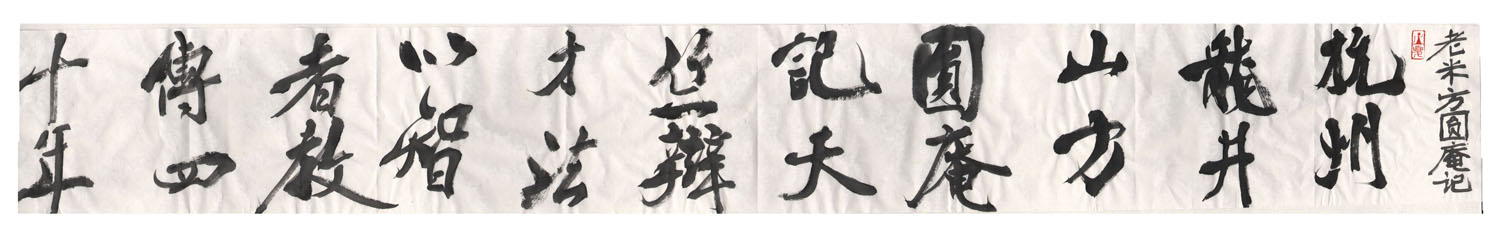 老米方圓庵记
杭州
龍井
山方
圓庵
記天
竺辯
才法
以智
者教
傳四
十年